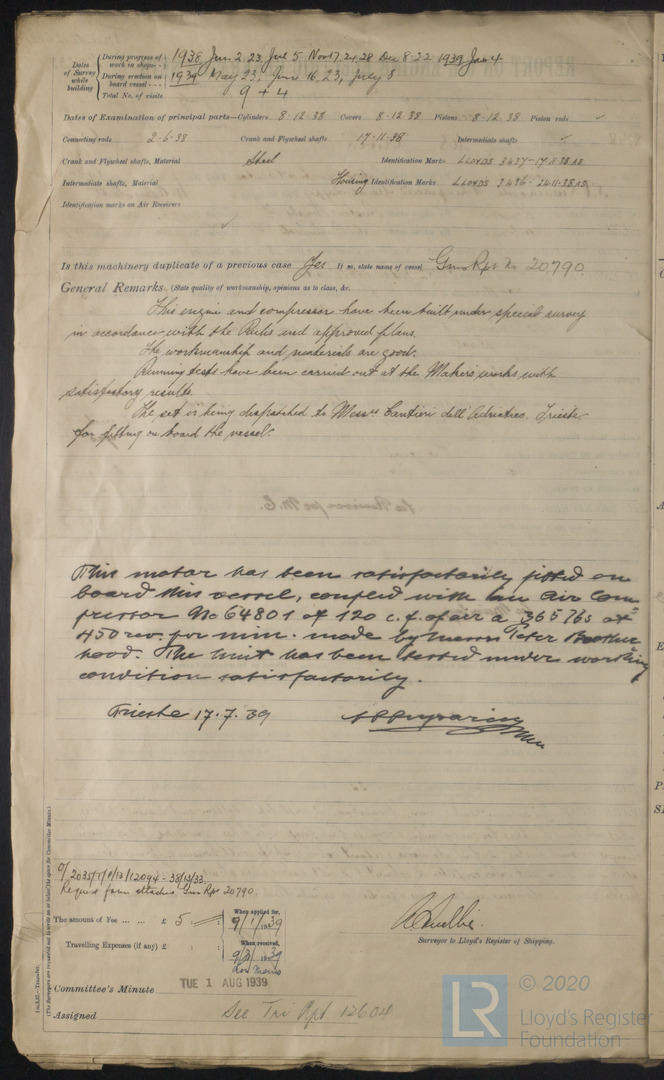 Dates of Survey while building
During progress of work in shops - - 1938 Jun. 2. 23. Jul 5 Nov 17. 24. 28 Dec 8. 22 1939 Jan 4
During erection on board vessel - - - 1939 May 23, June 16, 23, July 8
Total No. of visits 9 + 4
Dates of Examination of principal parts—Cylinders 8.12.38 Covers 8.12.38 Pistons 8.12.38 Piston rods ✓
Connecting rods 2.6.38 Crank and Flywheel shafts 17.11.38 Intermediate shafts ✓
Crank and Flywheel shafts, Material Steel Identification Marks LLOYDS 3437-17.11.38 AB
Intermediate shafts, Material Housing Identification Marks LLOYDS 3436-24.11.38
Identification marks on Air Receivers
✓
Is this machinery duplicate of a previous case Yes If so, state name of vessel Gms Rpt No 20790
General Remarks. (State quality of workmanship, opinions as to class, &c.
This engine and compressor have been built under special survey
in accordance with the Rules and approved plans.
The workmanship and materials are good.
Running tests have been carried out at the Makers' works with
satisfactory results.
The set is being despatched to Messrs Cantieri dell Adriatico. Trieste
for fitting on board the vessel.
This motor has been satisfactorily fitted on
board this vessel, coupled with an Air Com
pressor No 64801 of 120 c.f. of air a 365 lbs at
450 rev. per min. made by Messrs Peter Brother
hood. The Unit has been tested under working
condition satisfactorily.
Trieste 17.7.39
(The Surveyors are requested not to write on or below the space for Committee Minute.)
Request form attached Gms Rpt 20790.
The amount of Fee ... ... £ 5 : : When applied for, 9/1/1939
Travelling Expenses (if any) £ : : When received, 9/3/1939
Surveyor to Lloyd's Register of Shipping.
Committee's Minute TUE 1 AUG 1939
Assigned See Tri Rpt 12604
LR © 2020
Lloyd's Register
Foundation